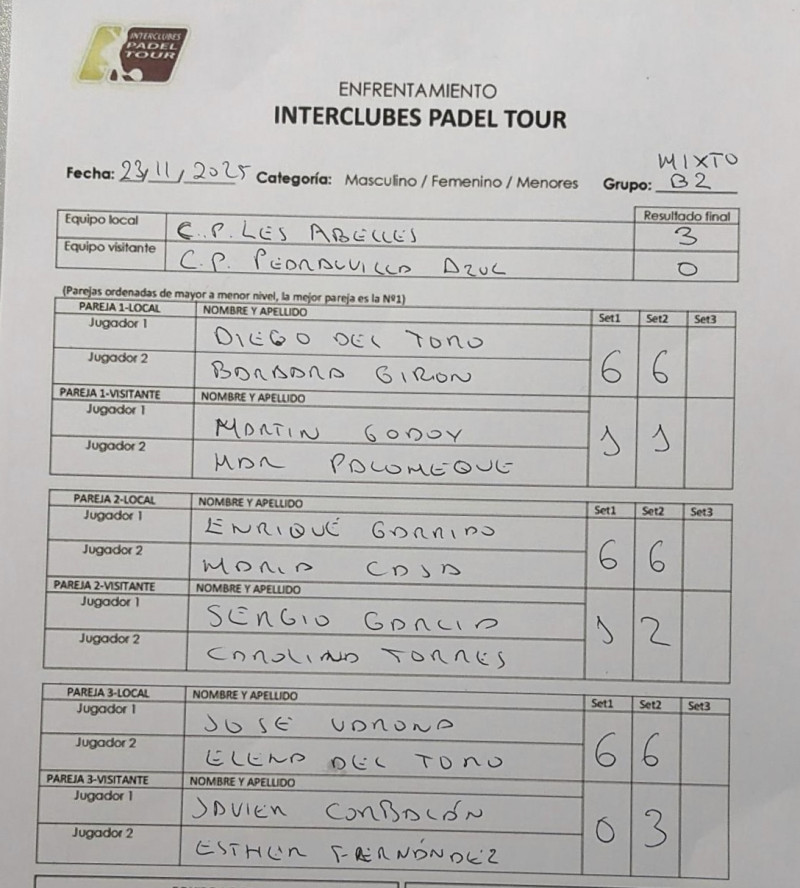 INTERCLUBES
PADEL
TOUR
ENFRENTAMIENTO
INTERCLUBES PADEL TOUR
Fecha: 23/11/2025 Categoría: Masculino / Femenino / Menores Grupo: MIXTO B2
Resultado final
Equipo local C.P. LES ABELLES 3
Equipo visitante C.P. PEDRALVILLA AZUL 0
(Parejas ordenadas de mayor a menor nivel, la mejor pareja es la Nº1)
PAREJA 1-LOCAL NOMBRE Y APELLIDO Set1 Set2 Set3
Jugador 1 DIEGO DEL TORO
Jugador 2 BARBARA GIRON 6 6
PAREJA 1-VISITANTE NOMBRE Y APELLIDO
Jugador 1 MARTIN GODOY 1 1
Jugador 2 MAR PALOMEQUE
PAREJA 2-LOCAL NOMBRE Y APELLIDO Set1 Set2 Set3
Jugador 1 ENRIQUE GARRIDO
Jugador 2 MARIA CASA 6 6
PAREJA 2-VISITANTE NOMBRE Y APELLIDO
Jugador 1 SERGIO GARCIA 1 2
Jugador 2 CAROLINA TORRES
PAREJA 3-LOCAL NOMBRE Y APELLIDO Set1 Set2 Set3
Jugador 1 JOSE VARONA
Jugador 2 ELENA DEL TORO 6 6
PAREJA 3-VISITANTE NOMBRE Y APELLIDO
Jugador 1 JAVIER CORBALÁN 0 3
Jugador 2 ESTHER FERNÁNDEZ